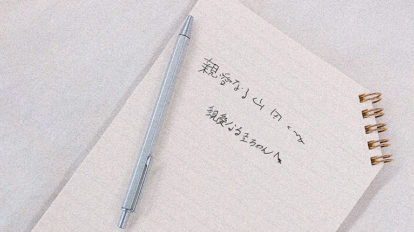 親愛なる山田くん
親愛なる王ちゃんへ